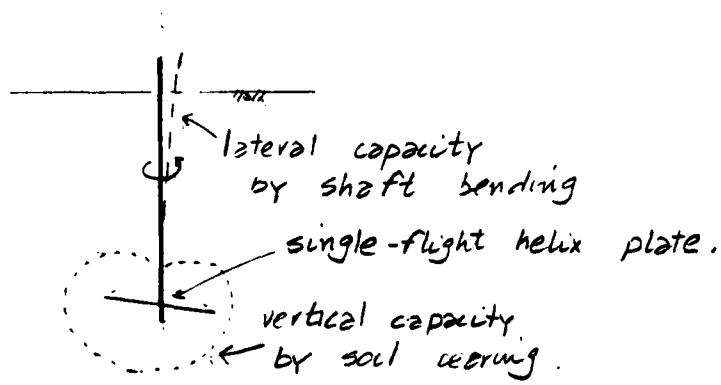 lateral capacity
by shaft bending
single-flight helix plate.
vertical capacity
by soil